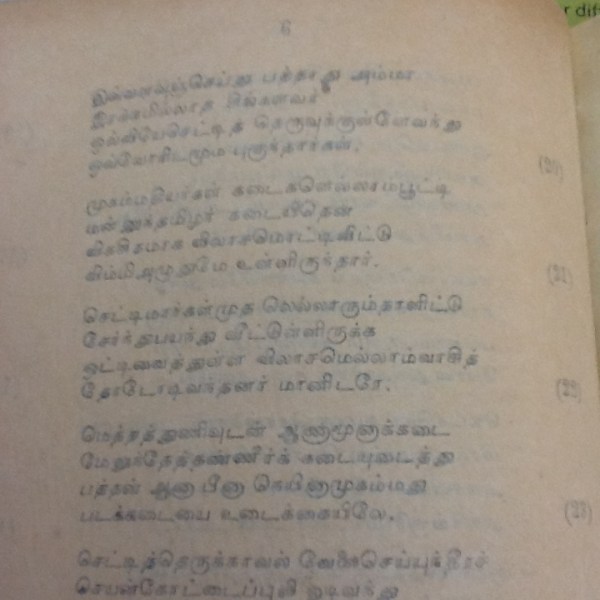 r dif
6
இவ்வளவுஞ்செய்து பத்தாது அம்மா
இரக்கமில்லாத சிங்களவர்
ஒவ்வியேசெட்டித் தெருவுக்குள்ளேவந்து
ஒவ்வோரிடமும் புகுந்தார்கள்.
(20)
முகம்மதியர்கள் கடைகளெல்லாம்பூட்டி
மன்னுந்தமிழர் கடையிதென
விகிதமாக விலாசமொட்டிவிட்டு
விம்மிஅழுதுமே உள்ளிருந்தார்.
(21)
செட்டிமார்கள்முத லெல்லாரும்தாளிட்டு
சேர்ந்துபயந்து வீட்டுள்ளிருக்க
ஒட்டிவைத்துள்ள விலாசமெல்லாம்வாசித்
தோடோடிவந்தனர் மானிடரே.
(22)
மெத்தத்துணிவுடன் ஆணாமூனாக்கடை
மேலுந்தேத்தண்ணீர்க் கடையுடைத்து
பத்தன் ஆனா பீனா செயினாமுகம்மது
படக்கடையை உடைக்கையிலே.
(23)
செட்டித்தெருக்காவல் வேலைசெய்யுந்தீரர்
செயன்கோட்டைப்புலி ஓடிவந்து